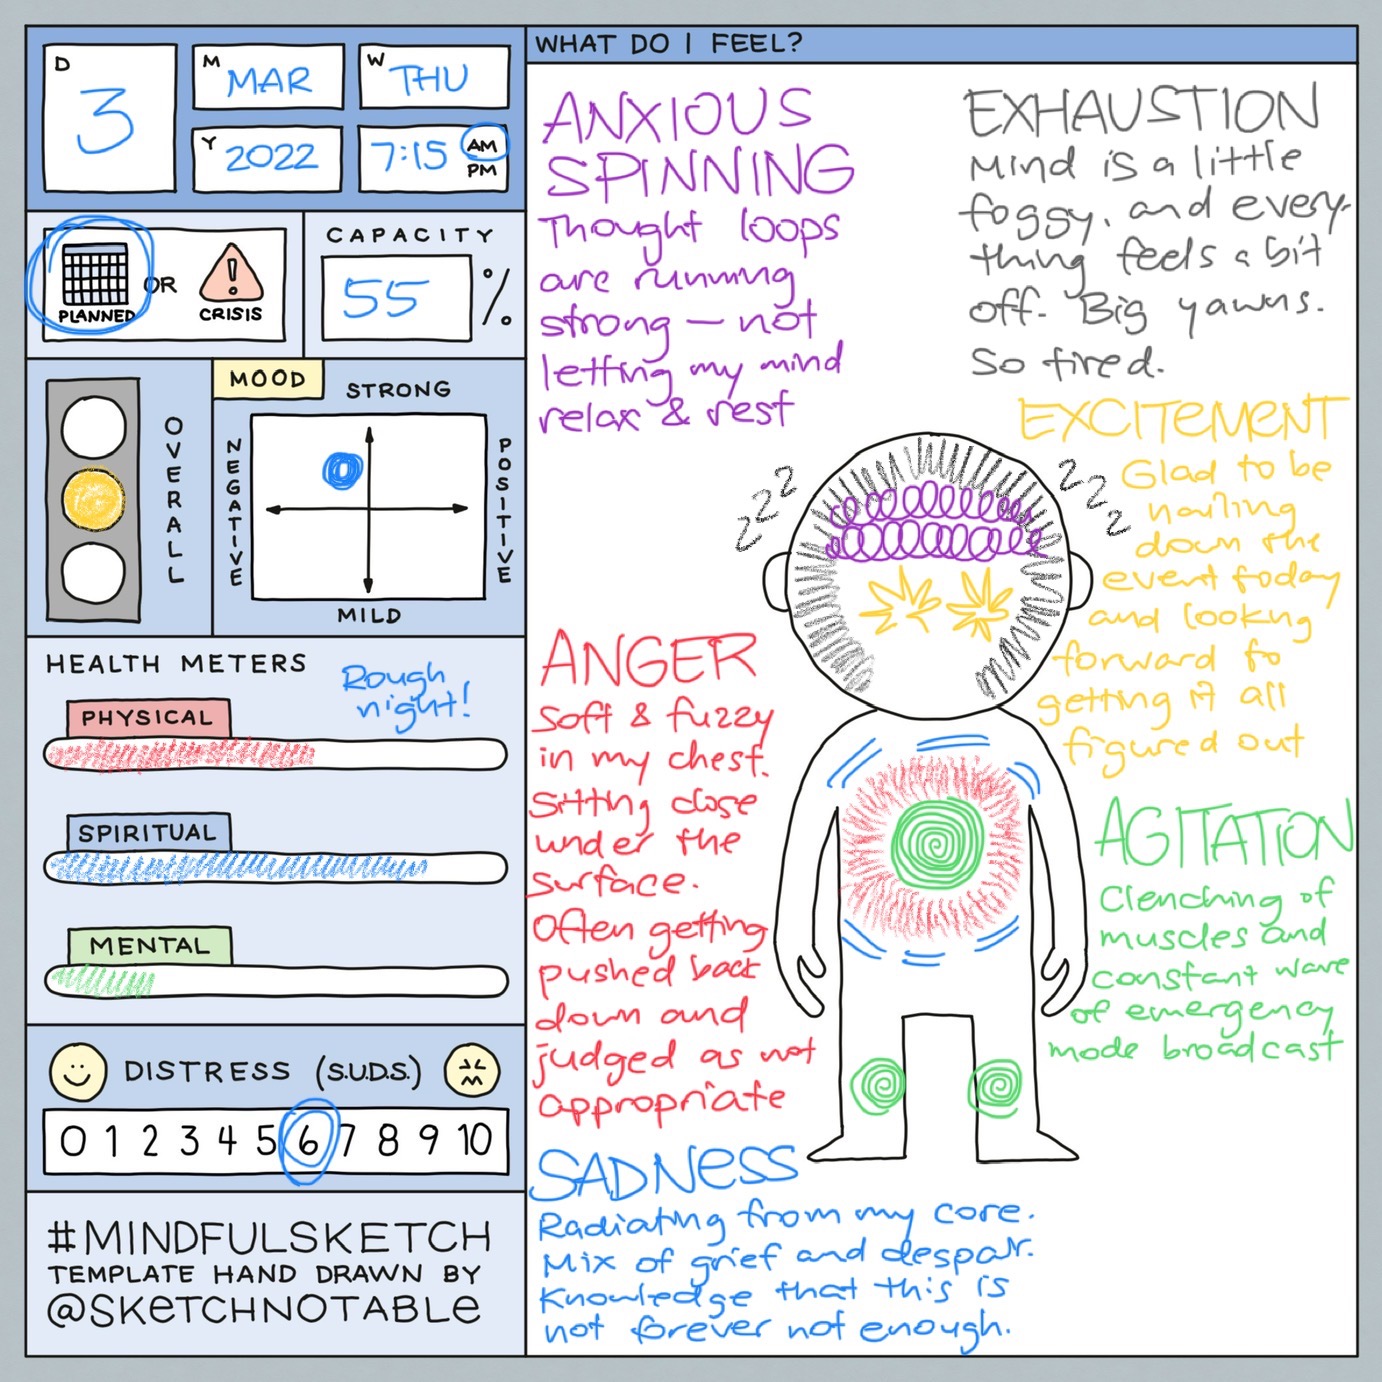 D
3
M
MAR
W
THU
Y
2022
7:15
AM
PM
PLANNED
OR
!
CRISIS
CAPACITY
55 %
OVERALL
MOOD
STRONG
NEGATIVE
POSITIVE
MILD
HEALTH METERS
Rough
night!
PHYSICAL
SPIRITUAL
MENTAL
DISTRESS (S.U.D.S.)
0 1 2 3 4 5 6 7 8 9 10
#MINDFULSKETCH
TEMPLATE HAND DRAWN BY
@SKETCHNOTABLE
WHAT DO I FEEL?
ANXIOUS
SPINNING
Thought loops
are running
strong — not
letting my mind
relax & rest
EXHAUSTION
Mind is a little
foggy, and every-
thing feels a bit
off. Big yawns.
So tired.
EXCITEMENT
Glad to be
nailing
down the
event today
and looking
forward to
getting it all
figured out
zzz
zzz
ANGER
Soft & fuzzy
in my chest.
Sitting close
under the
surface.
Often getting
pushed back
down and
judged as not
appropriate
AGITATION
Clenching of
muscles and
constant wave
of emergency
mode broadcast
SADNESS
Radiating from my core.
Mix of grief and despair.
Knowledge that this is
not forever not enough.